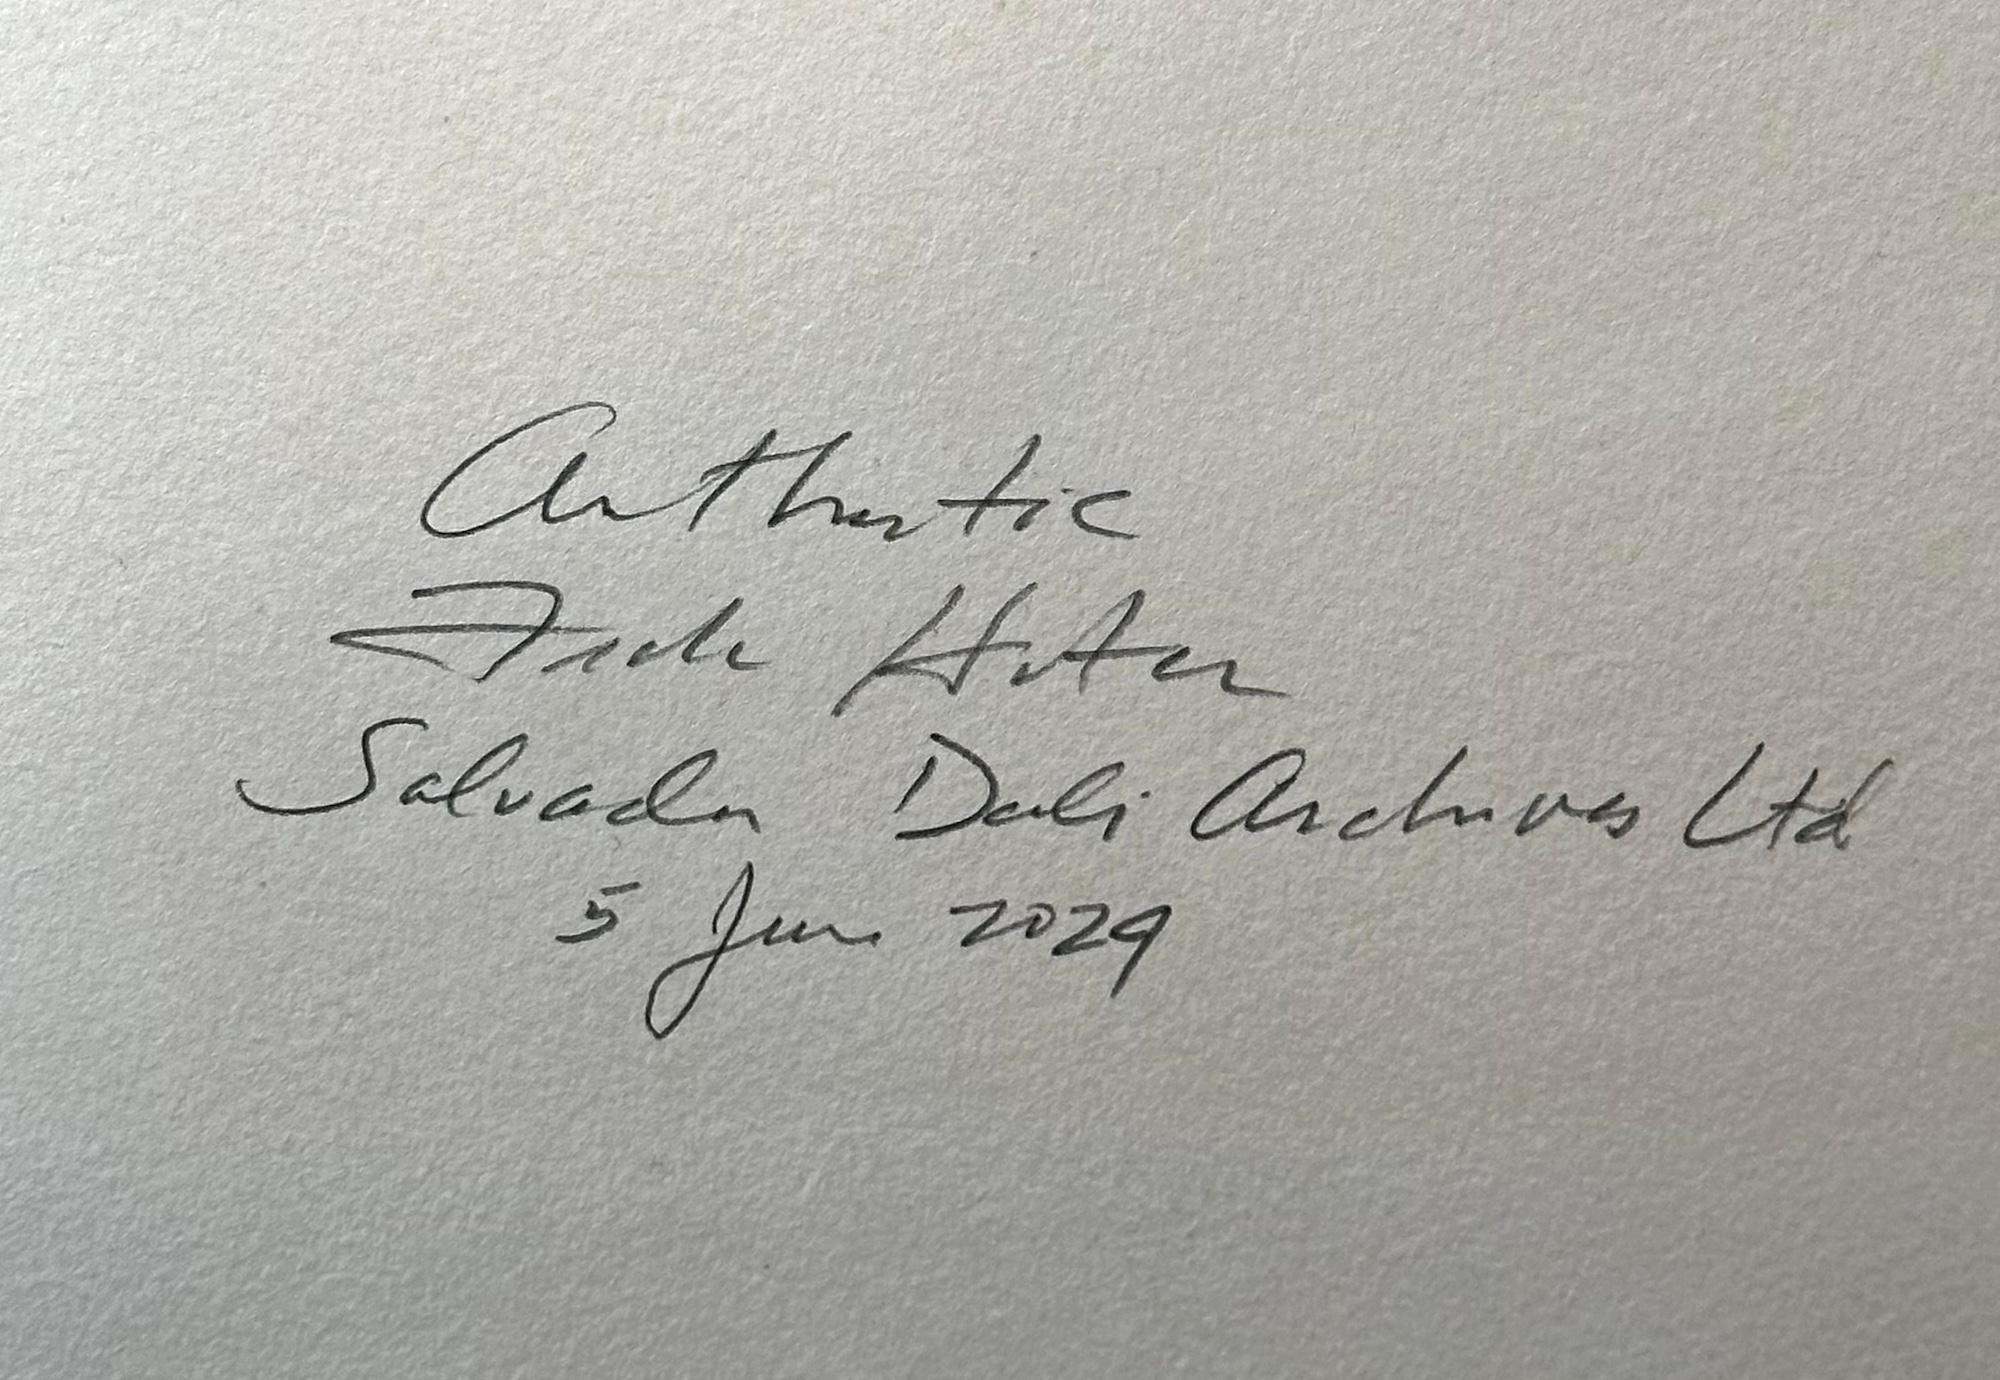 Authentic
Frank Hunter
Salvador Dali Archives Ltd
5 June 2029